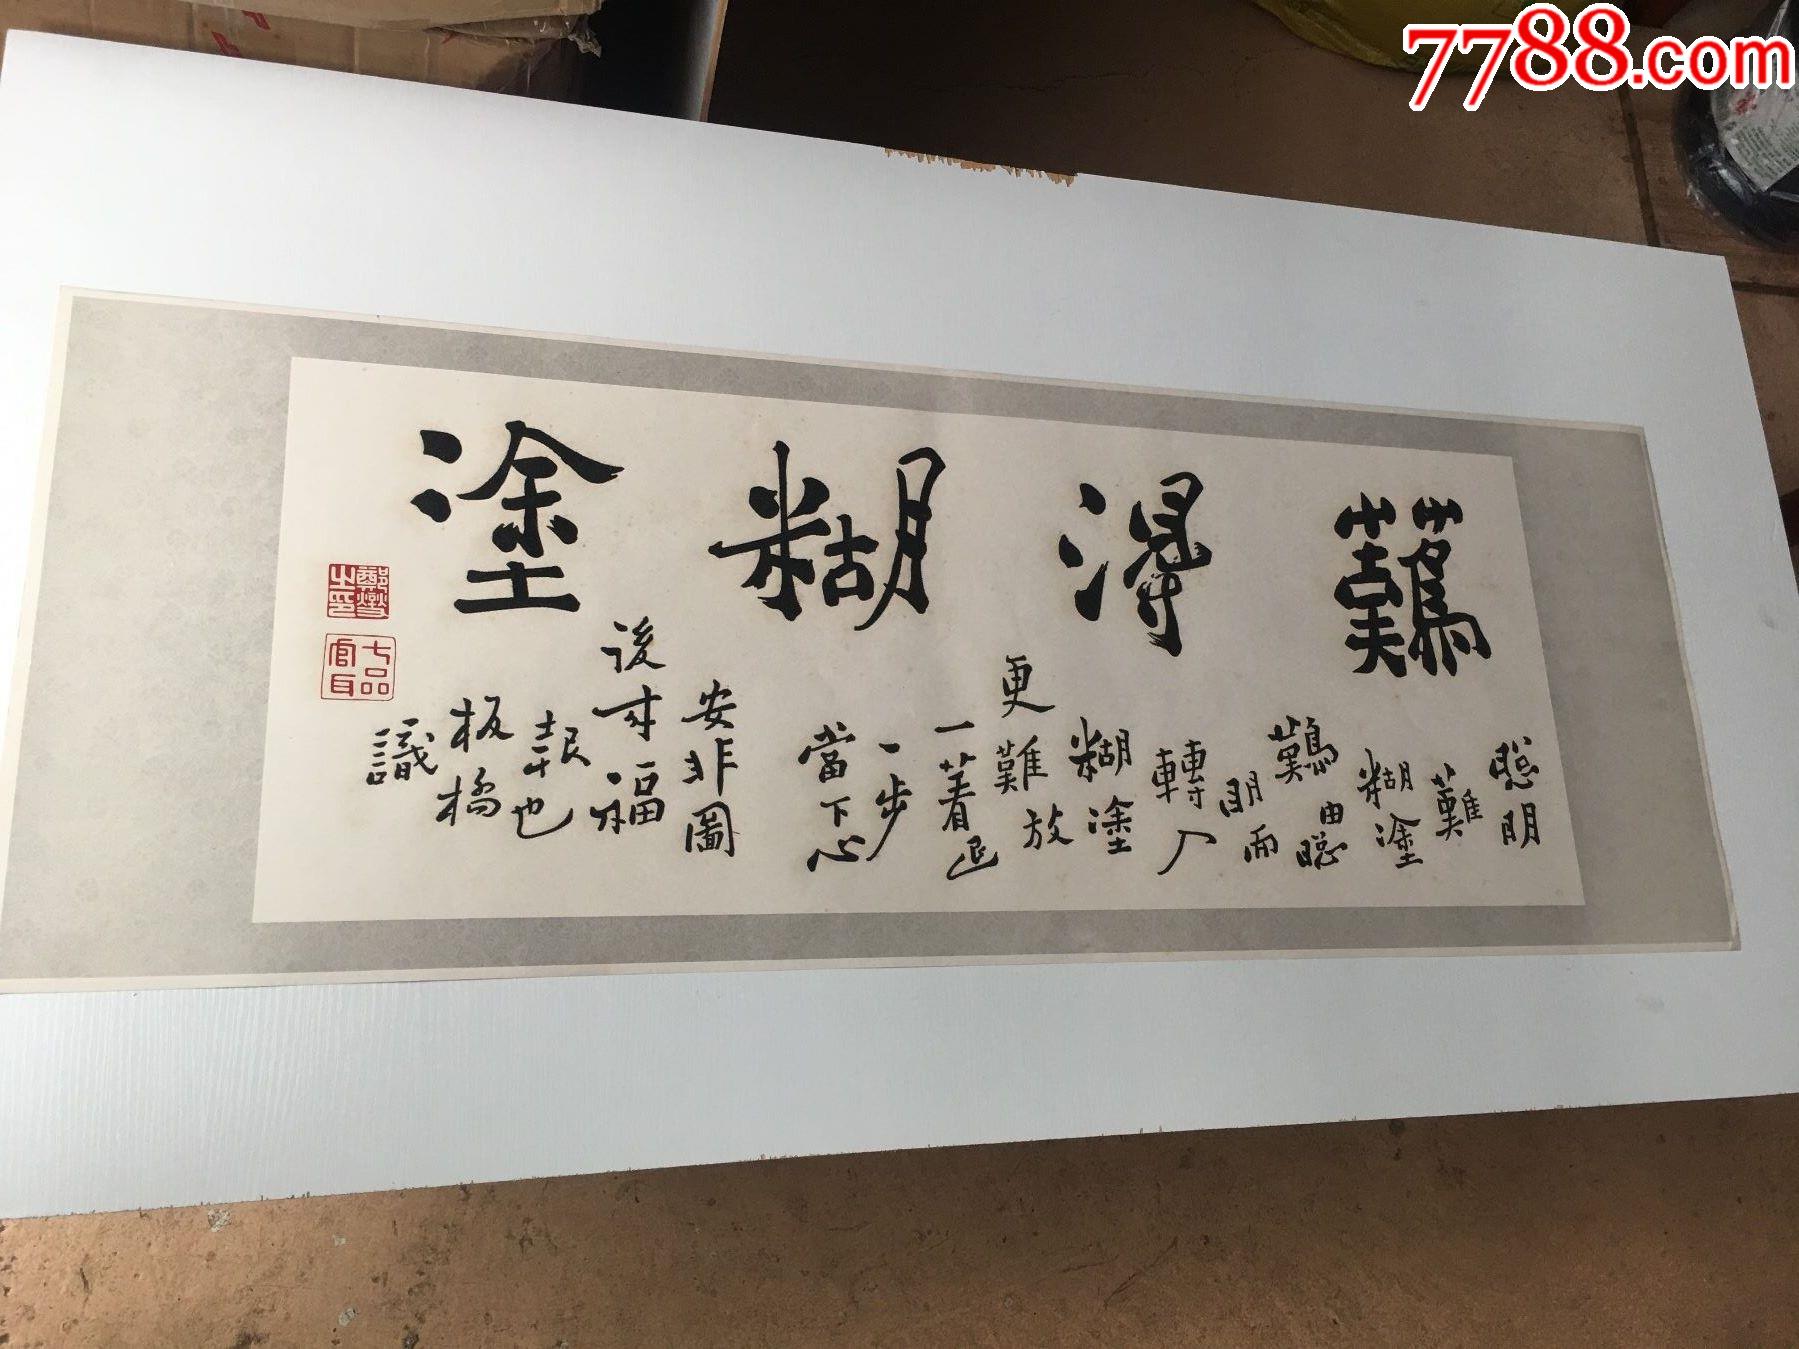 難得糊塗
聰明
難
糊塗
難由聰
明而
轉入
糊塗
更難放
一着退
一步
當下心
安非圖
後来福
報也
板橋
識
鄭燮之印
七品官耳
7788.com